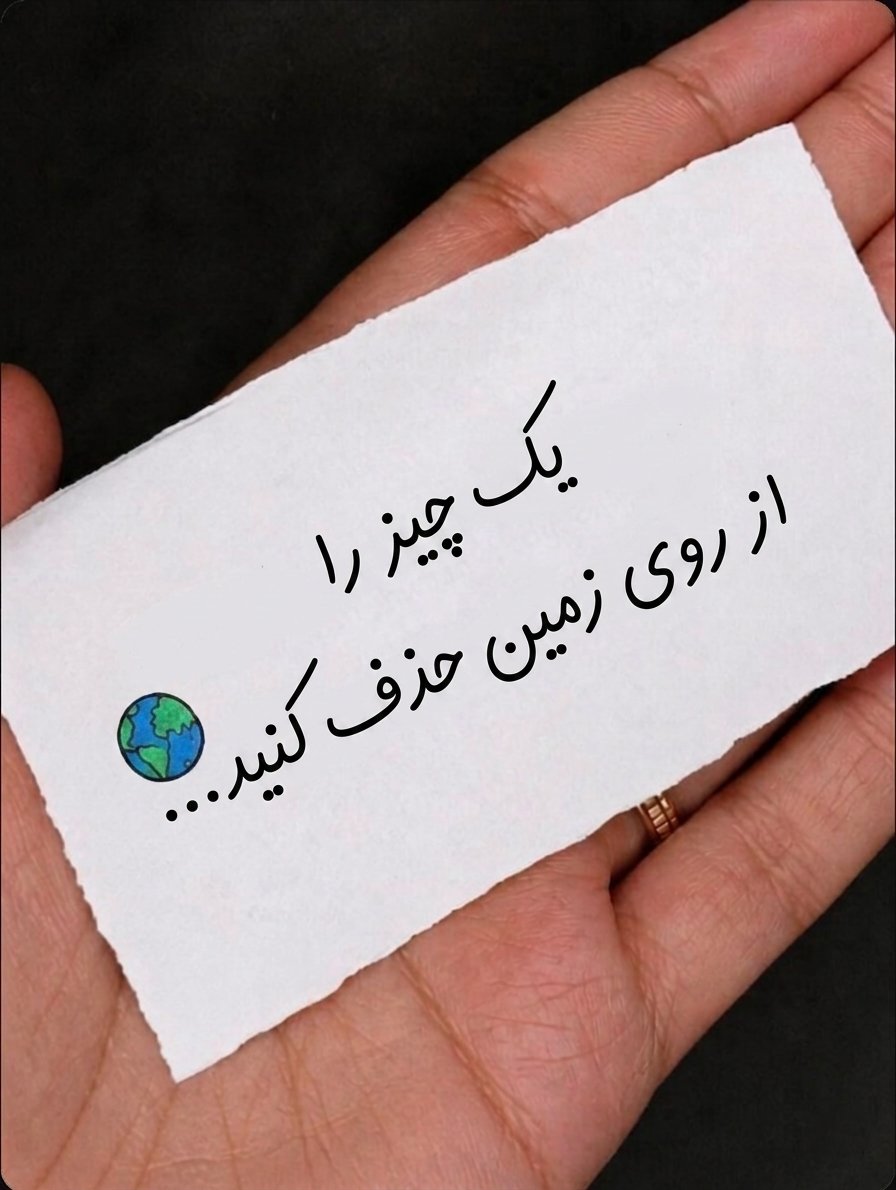 یک چیز را
از روی زمین حذف کنید...